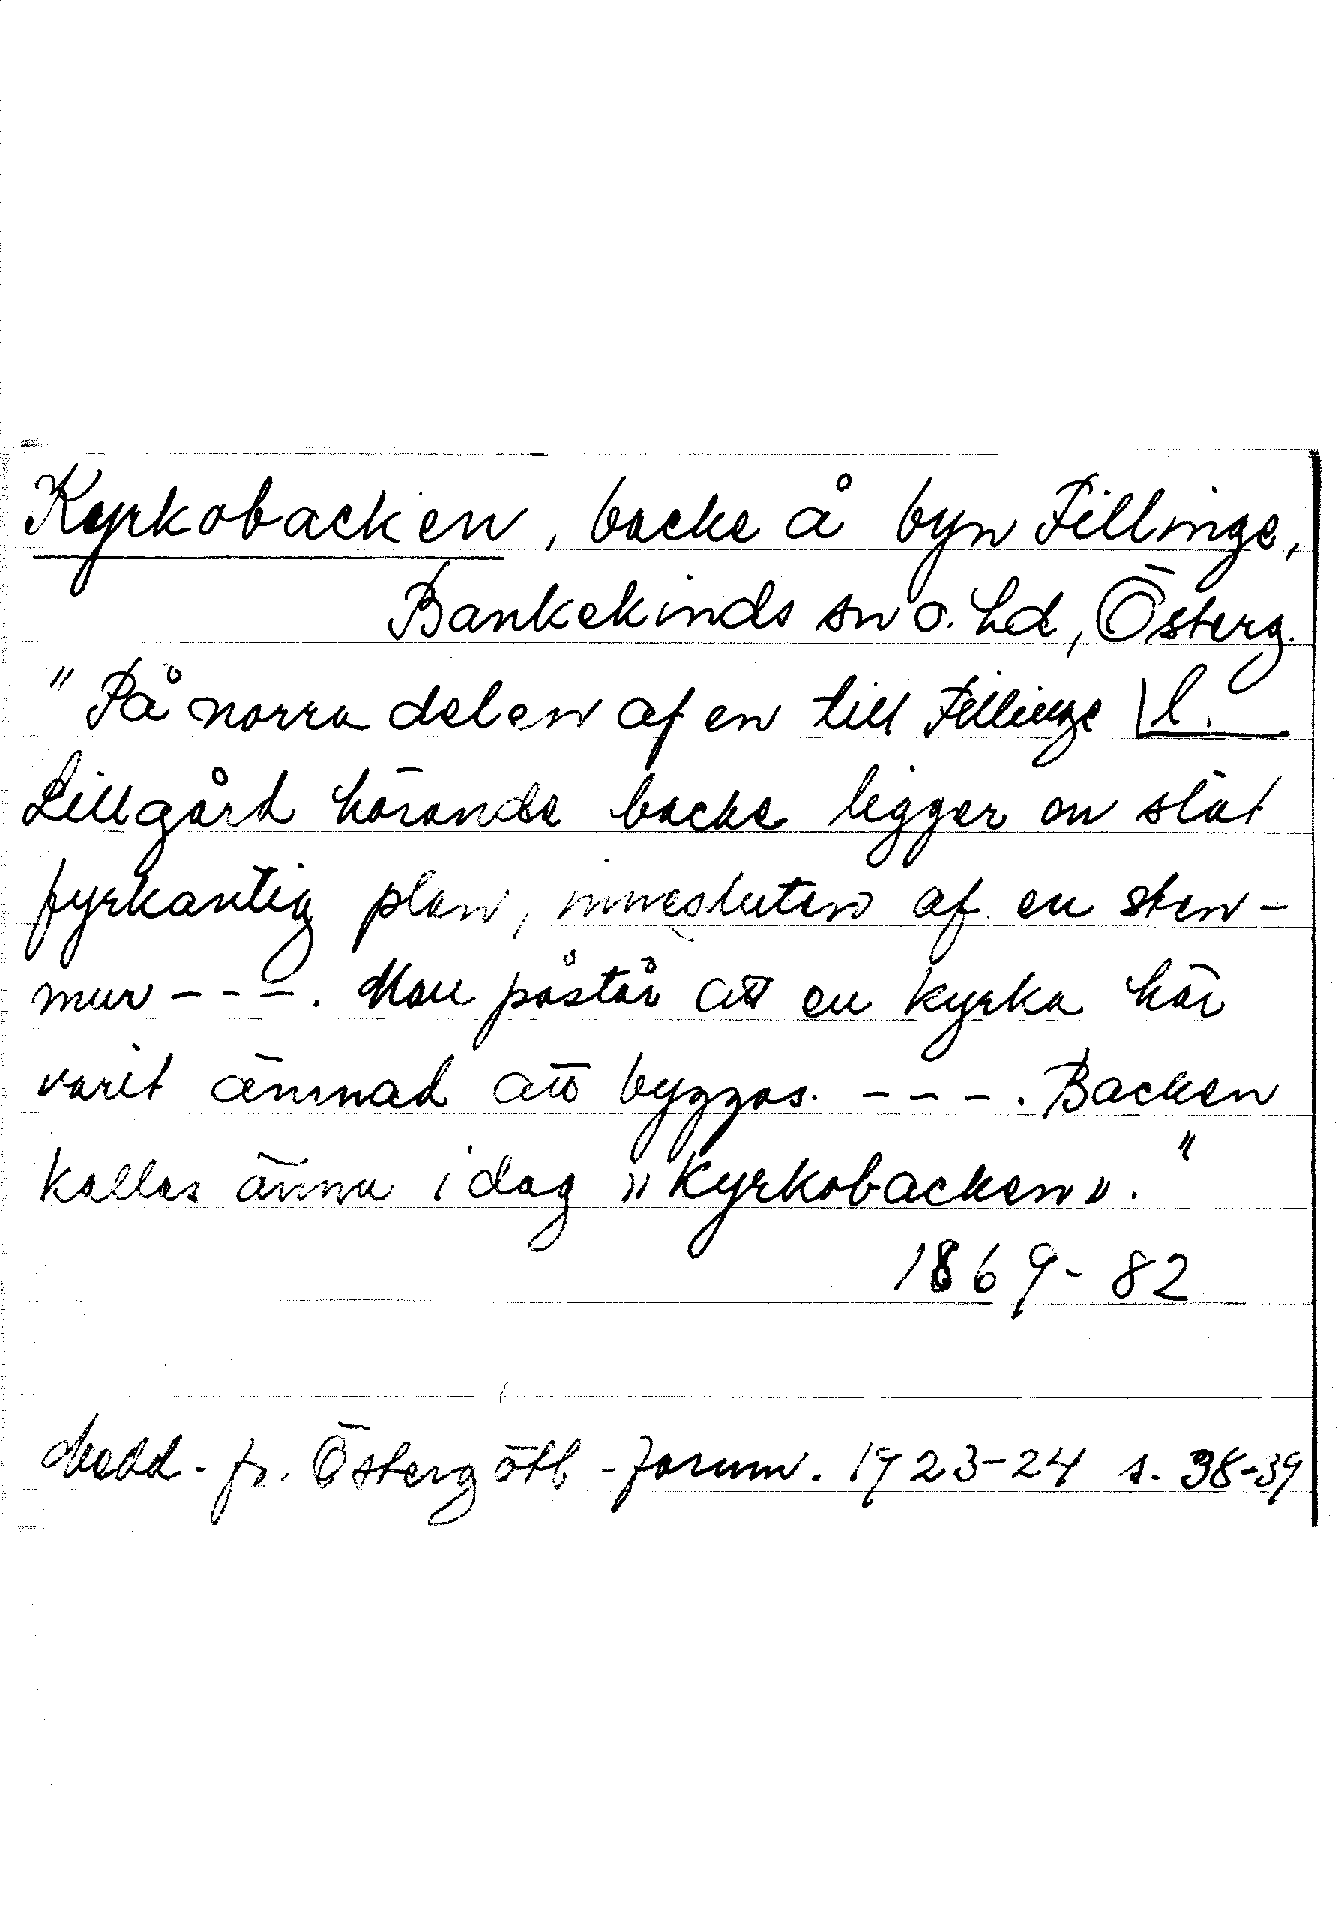 Kyrkobacken, backe å byn Fillinge,
Bankekinds sn o. hd, Österg.
"På norra delen af en till Fillinge l.
Lillgård hörande backe ligger en slät
fyrkantig plan, innesluten af en sten-
mur - - -. Man påstår att en kyrka här
varit ämnad att byggas. - - -. Backen
kallas ännu i dag »Kyrkobacken»."
1869-82
Medd. fr. Östergötl-fornm. 1923-24 s. 38-39